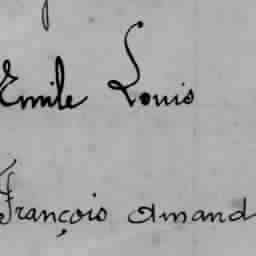 Emile Louis
François Amand